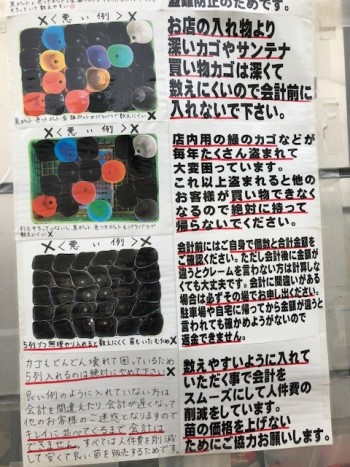 盗難防止のためです。
お店の入れ物より
深いカゴやサンテナ
買い物カゴは深くて
数えにくいので会計前に
入れないで下さい。
店内用の緑のカゴなどが
毎年たくさん盗まれて
大変困っています。
これ以上盗まれると他の
お客様が買い物できなく
なるので絶対に持って
帰らないでください。
会計前にはご自身で個数と会計金額を
ご確認ください。ただし会計後に金額が
違うとクレームを言わない方は計算しな
くても大丈夫です。会計に間違いがある
場合は必ずその場でお申し出ください。
駐車場や自宅に帰ってから金額が違うと
言われても確かめようがないので
返金できません。
数えやすいように入れて
いただく事で会計を
スムーズにして人件費の
削減をしています。
苗の価格を上げない
ためにご協力お願いします。
×<悪い例>×
×<悪い例>×
×<悪い例>×
5列づつ無理やり入れると数えにくく苗もいたむため×
カゴもどんどん壊れて困っているため
5列入れるのは絶対にやめて下さい
良い例のように入れていない方は
会計を間違えたり、会計が遅くなって
他のお客様のご迷惑となりますので
キレイに並べてくるまで会計は
できません。すべては人件費を削減
して安くて良い苗を販売するためです。